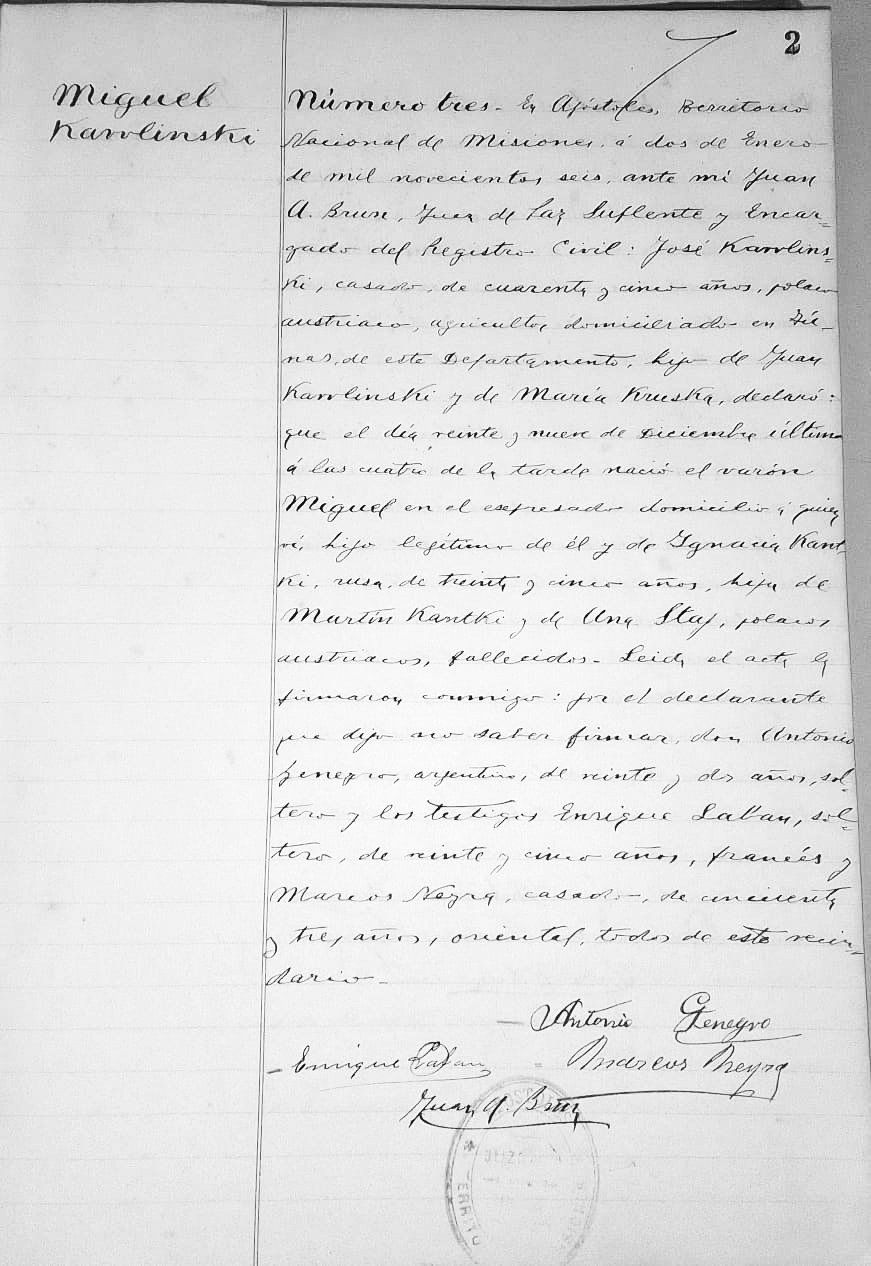 2
Miguel
Karolinski
Número tres - En Apóstoles, Territorio
Nacional de Misiones, á dos de Enero
de mil novecientos seis, ante mi Juan
A. Brun, Juez de Paz Suplente y Encar=
gado del Registro Civil: José Karolins=
ki, casado, de cuarenta y cinco años, polaco
austriaco, agricultor domiciliado en
de este Departamento, hijo de Juan
Karolinski y de María Kruska, declaró:
que el día veinte y nueve de Diciembre último
á las cuatro de la tarde nació el varón
Miguel en el espresado domicilio á quien
ví, hijo legítimo de él y de Ignacia Kant-
ki, rusa, de treinta y cinco años, hija de
Martín Kantki y de Ana Staj, polacos
austriacos, fallecidos - Leida el acta la
firmaron conmigo: por el declarante
que dijo no saber firmar, don Antonio
Genegro, argentino, de veinte y dos años, sol-
tero y los testigos Enrique Laban, sol-
tero, de veinte y cinco años, francés y
Marcos Neyra, casado, de cincuenta
y tres años, oriental, todos de este vecin-
dario -
Antonio Genegro
Enrique Laban
Marcos Neyra
Juan A. Brun